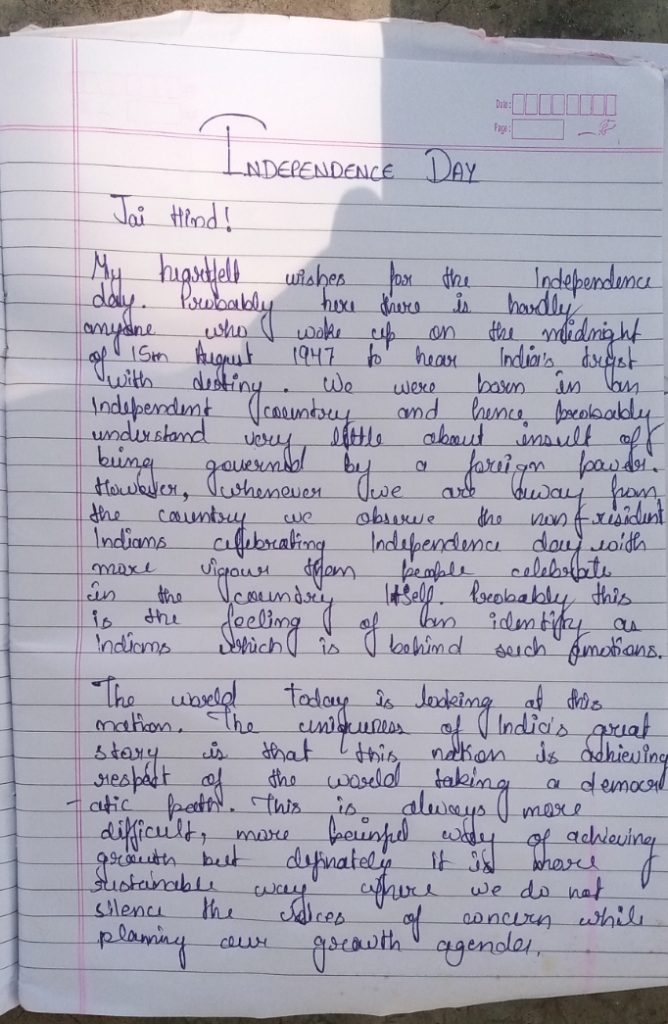 Date:
Page:
INDEPENDENCE DAY
Jai Hind!
My heartfelt wishes for the Independence
day. Probably here there is hardly
anyone who woke up on the midnight
of 15th August 1947 to hear India's tryst
with destiny. We were born in an
Independent country and hence probably
understand very little about insult of
being governed by a foreign power.
However, whenever we are away from
the country we observe the non-resident
Indians celebrating Independence day with
more vigour than people celebrate
in the country Itself. Probably this
is the feeling of an identity as
Indians which is behind such emotions.
The world today is looking at this
nation. The uniqueness of India's great
story is that this nation is achieving
respect of the world taking a democr
-atic path. This is always more
difficult, more painful way of achieving
growth but definately it is more
sustainable way where we do not
silence the voices of concern while
planning our growth agendas.